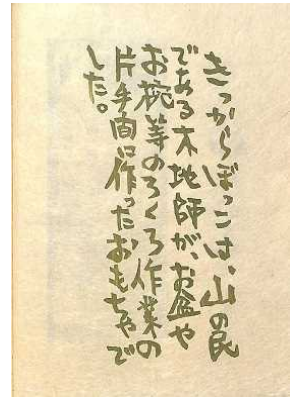 きっからぼっこは、山の民
である木地師が、お盆や
お椀等のろくろ作業の
片手間に作ったおもちゃで
した。